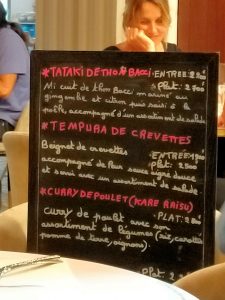 *TATAKI DE THON BACCI
ENTREE
Mi cuit de thon Bacci mariné au
PLAT: 2700
gingembre et citron puis saisi à la
poêle, accompagné d'un assortiment de salade
*TEMPURA DE CREVETTES
Beignet de crevettes
ENTREE
accompagné de leur sauce aigre douce
PLAT 2500
et servis avec un assortiment de salade.
*CURRY DE POULET (KARE RAISU)
PLAT: 2
Curry de poulet avec son
assortiment de légumes (riz, carottes
pomme de terre, oignons).
Plat: 2